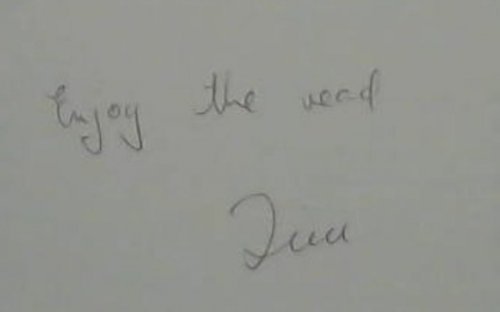 Enjoy the read